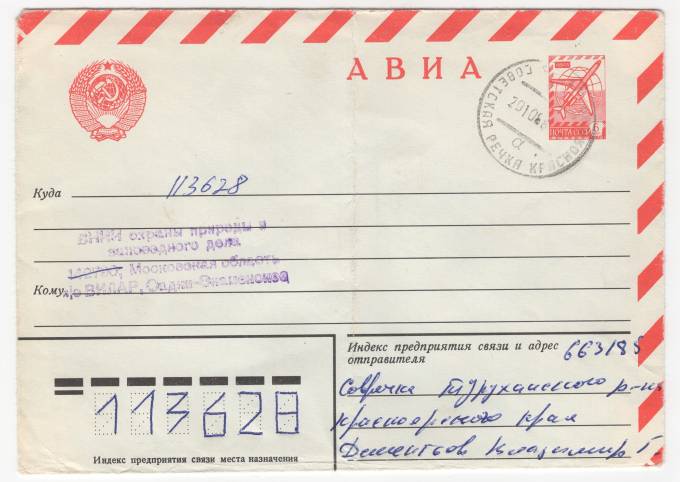 АВИА
СОВЕТСКАЯ РЕЧКА КРАСНОЯ
291086
а
ПОЧТА СССР
6
Куда 113628
ВНИИ охраны природы и
заповедного дела
Московская область
Кому п/о ВИЛАР, Садки-Знаменское
Индекс предприятия связи и адрес
отправителя 663185
Совречка Туруханского р-на
Красноярского края
Дементьев Владимир Г.
113628
Индекс предприятия связи места назначения